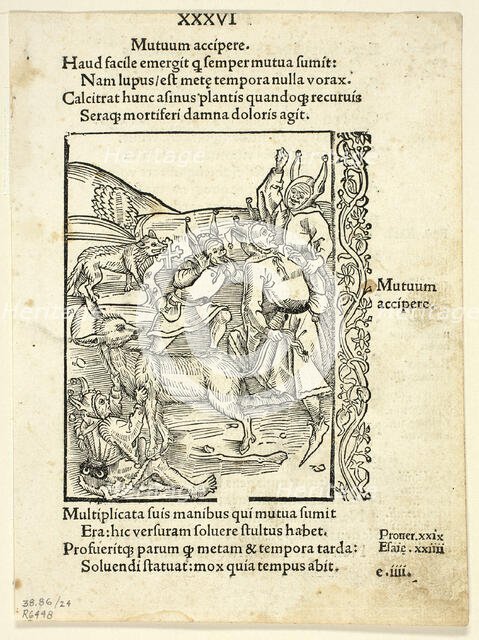 XXXVI
Mutuum accipere.
Haud facile emergit ꝙ semper mutua sumit:
Nam lupus/est metę tempora nulla vorax.
Calcitrat hunc asinus plantis quandoqꝫ recuruis
Seraqꝫ mortiferi damna doloris agit.
Mutuum
accipere.
Multiplicata suis manibus qui mutua sumit
Era: hic versuram soluere stultus habet.
Profueritqꝫ parum ꝙ metam & tempora tarda:
Soluendi statuat: mox quia tempus abit.
Prouer. xxix
Esaię. xxiiii
e.iiii.
38.86/24
R6448
Heritage
Heritage
Heritage
Heritage